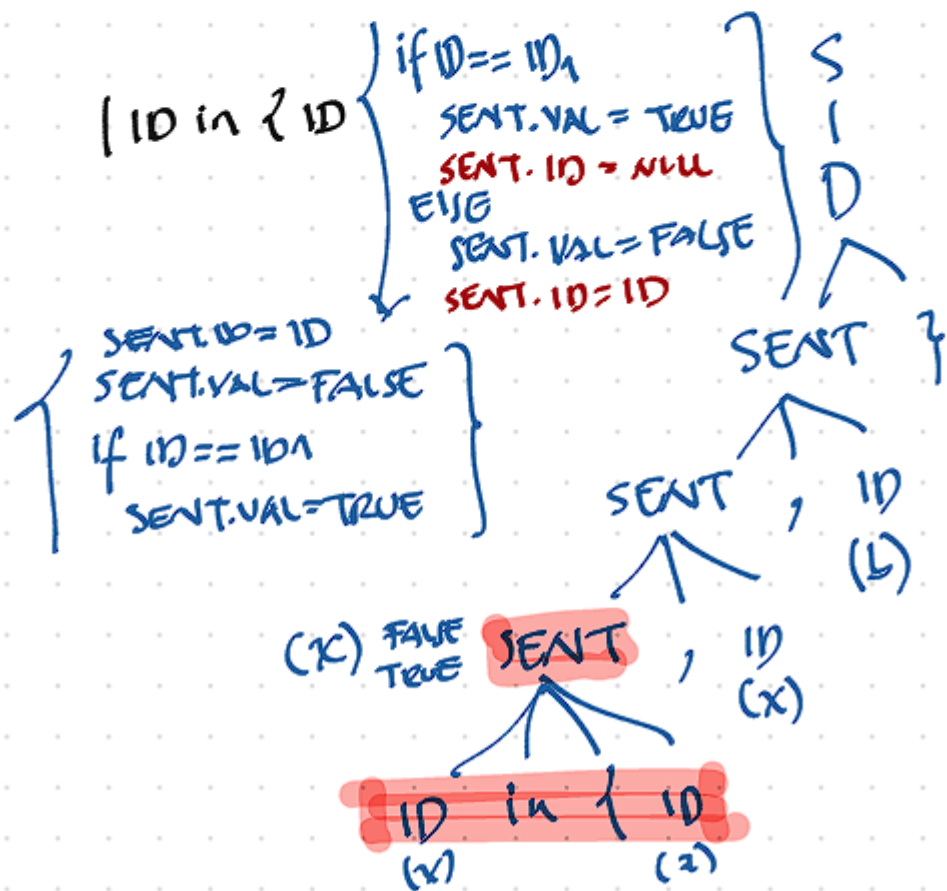 | ID in { ID
if ID == ID1
SENT.VAL = TRUE
SENT.ID = NULL
ELSE
SENT.VAL = FALSE
SENT.ID = ID
SENT.ID = ID
SENT.VAL = FALSE
if ID == ID1
SENT.VAL = TRUE
S
I
D
SENT }
SENT , ID
(b)
(x) FALSE
TRUE
SENT , ID
(x)
ID in { ID
(x) (z)